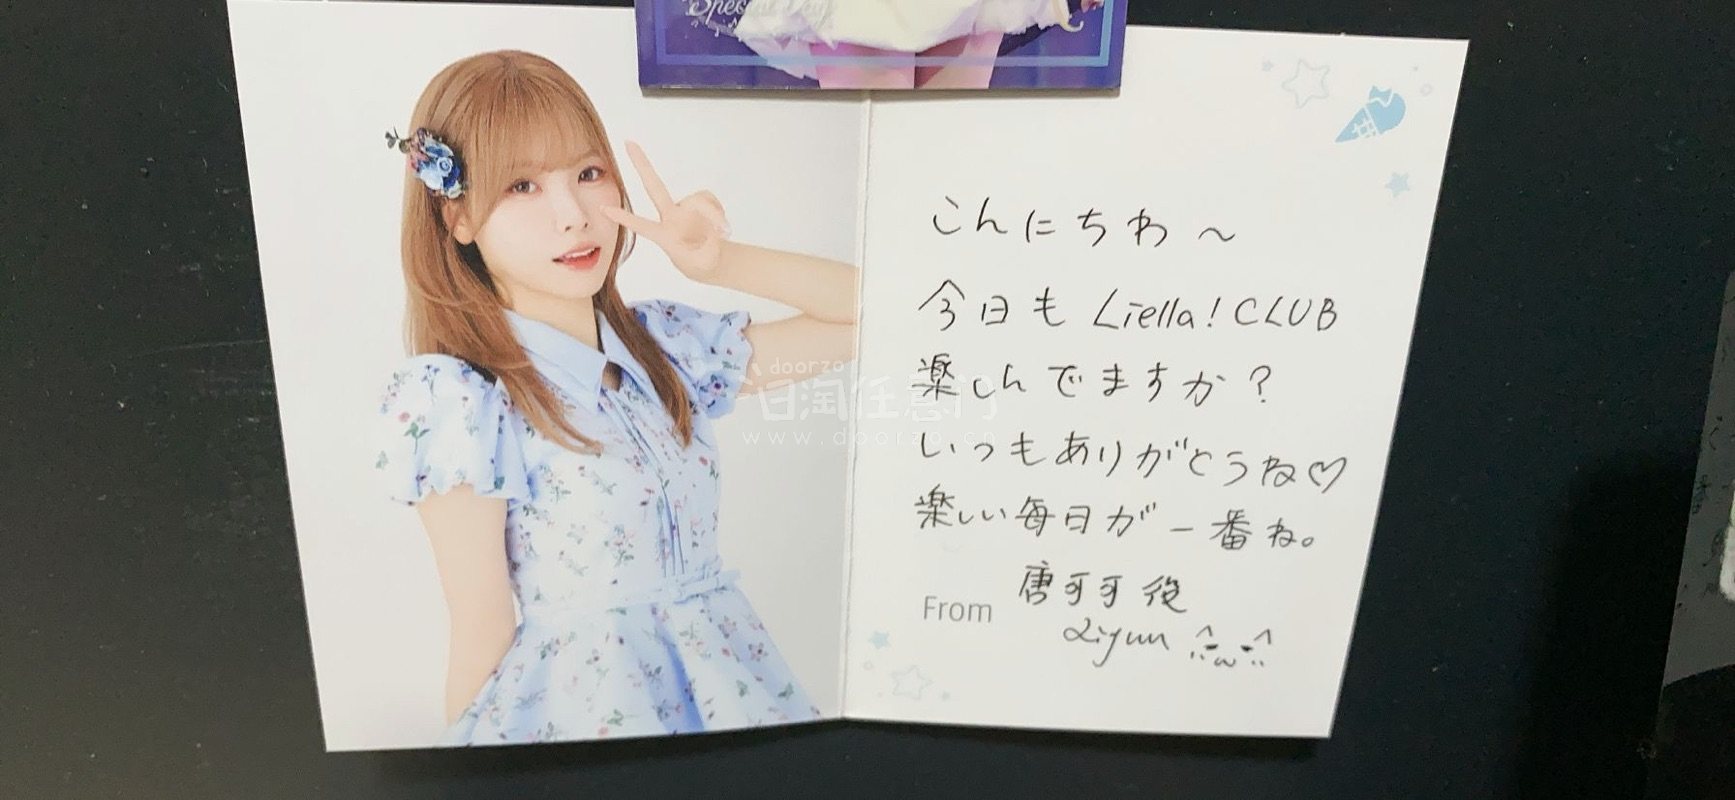 Special Day
こんにちわ～
今日も Liella! CLUB
楽しんでますか？
いつもありがとうね♡
楽しい毎日が一番ね。
From 唐可可 役
Liyuu
doorzo
日淘任意门
www.doorzo.cn